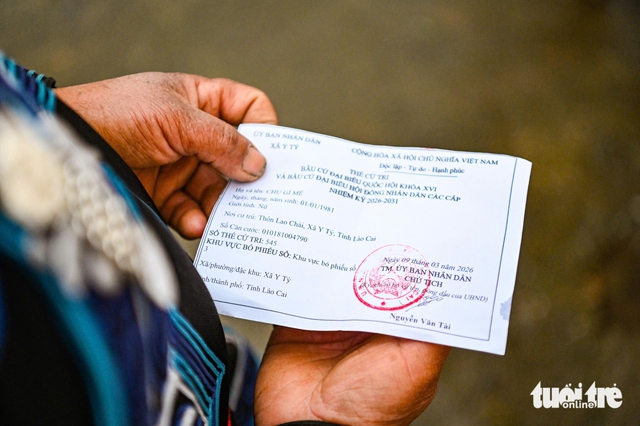 ỦY BAN NHÂN DÂN
XÃ Y TÝ
CỘNG HÒA XÃ HỘI CHỦ NGHĨA VIỆT NAM
Độc lập - Tự do - Hạnh phúc
THẺ CỬ TRI
BẦU CỬ ĐẠI BIỂU QUỐC HỘI KHÓA XVI
VÀ BẦU CỬ ĐẠI BIỂU HỘI ĐỒNG NHÂN DÂN CÁC CẤP
NHIỆM KỲ 2026-2031
Họ và tên: CHU GÌ MÉ
Ngày, tháng, năm sinh: 01/01/1981
Giới tính: Nữ
Nơi cư trú: Thôn Lao Chải, Xã Y Tý, Tỉnh Lào Cai
Số Căn cước: 010181004790
SỐ THẺ CỬ TRI: 545
KHU VỰC BỎ PHIẾU SỐ: Khu vực bỏ phiếu số
3
Xã/phường/đặc khu: Xã Y Tý
Tỉnh/thành phố: Tỉnh Lào Cai
Ngày 09 tháng 03 năm 2026
TM. ỦY BAN NHÂN DÂN
CHỦ TỊCH
đóng dấu của UBND)
Nguyễn Văn Tài
tuổi trẻ
online